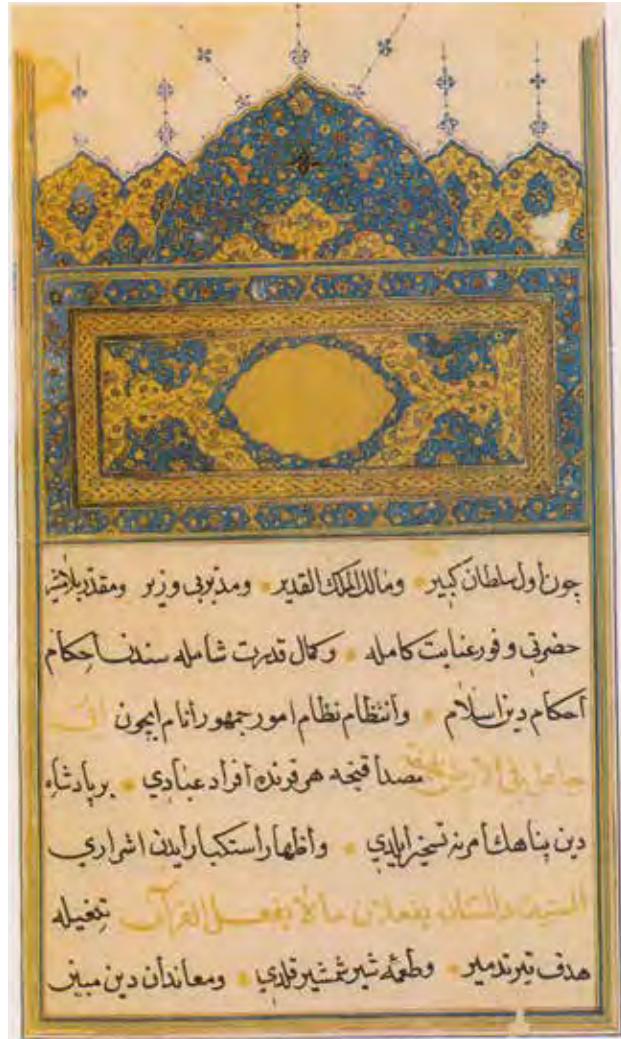 چون اول سلطان کبیر ومالك الملك القدیر ومدبر بی وزیر ومقدر بلامشیر
حضرتی وفور عنایت کامله وکمال قدرت شامله سندن احکام
أحکام دین اسلام وأنتظام نظام امور جمهور أنام ایچون انی
جاعل فی الارض خلیفة مصداقنجه هر قرنده أفراد عبادی بر پادشاه
دین پناهك أمرنه تسخیر ایلدی وأظهار أستکبار أیدن اشراری
السیف والسنان یفعلان مالا یفعل القرآن تیغیله
هدف تیر تدمیر وطعمه شیر شمشیر قلدی ومعاندان دین مبین